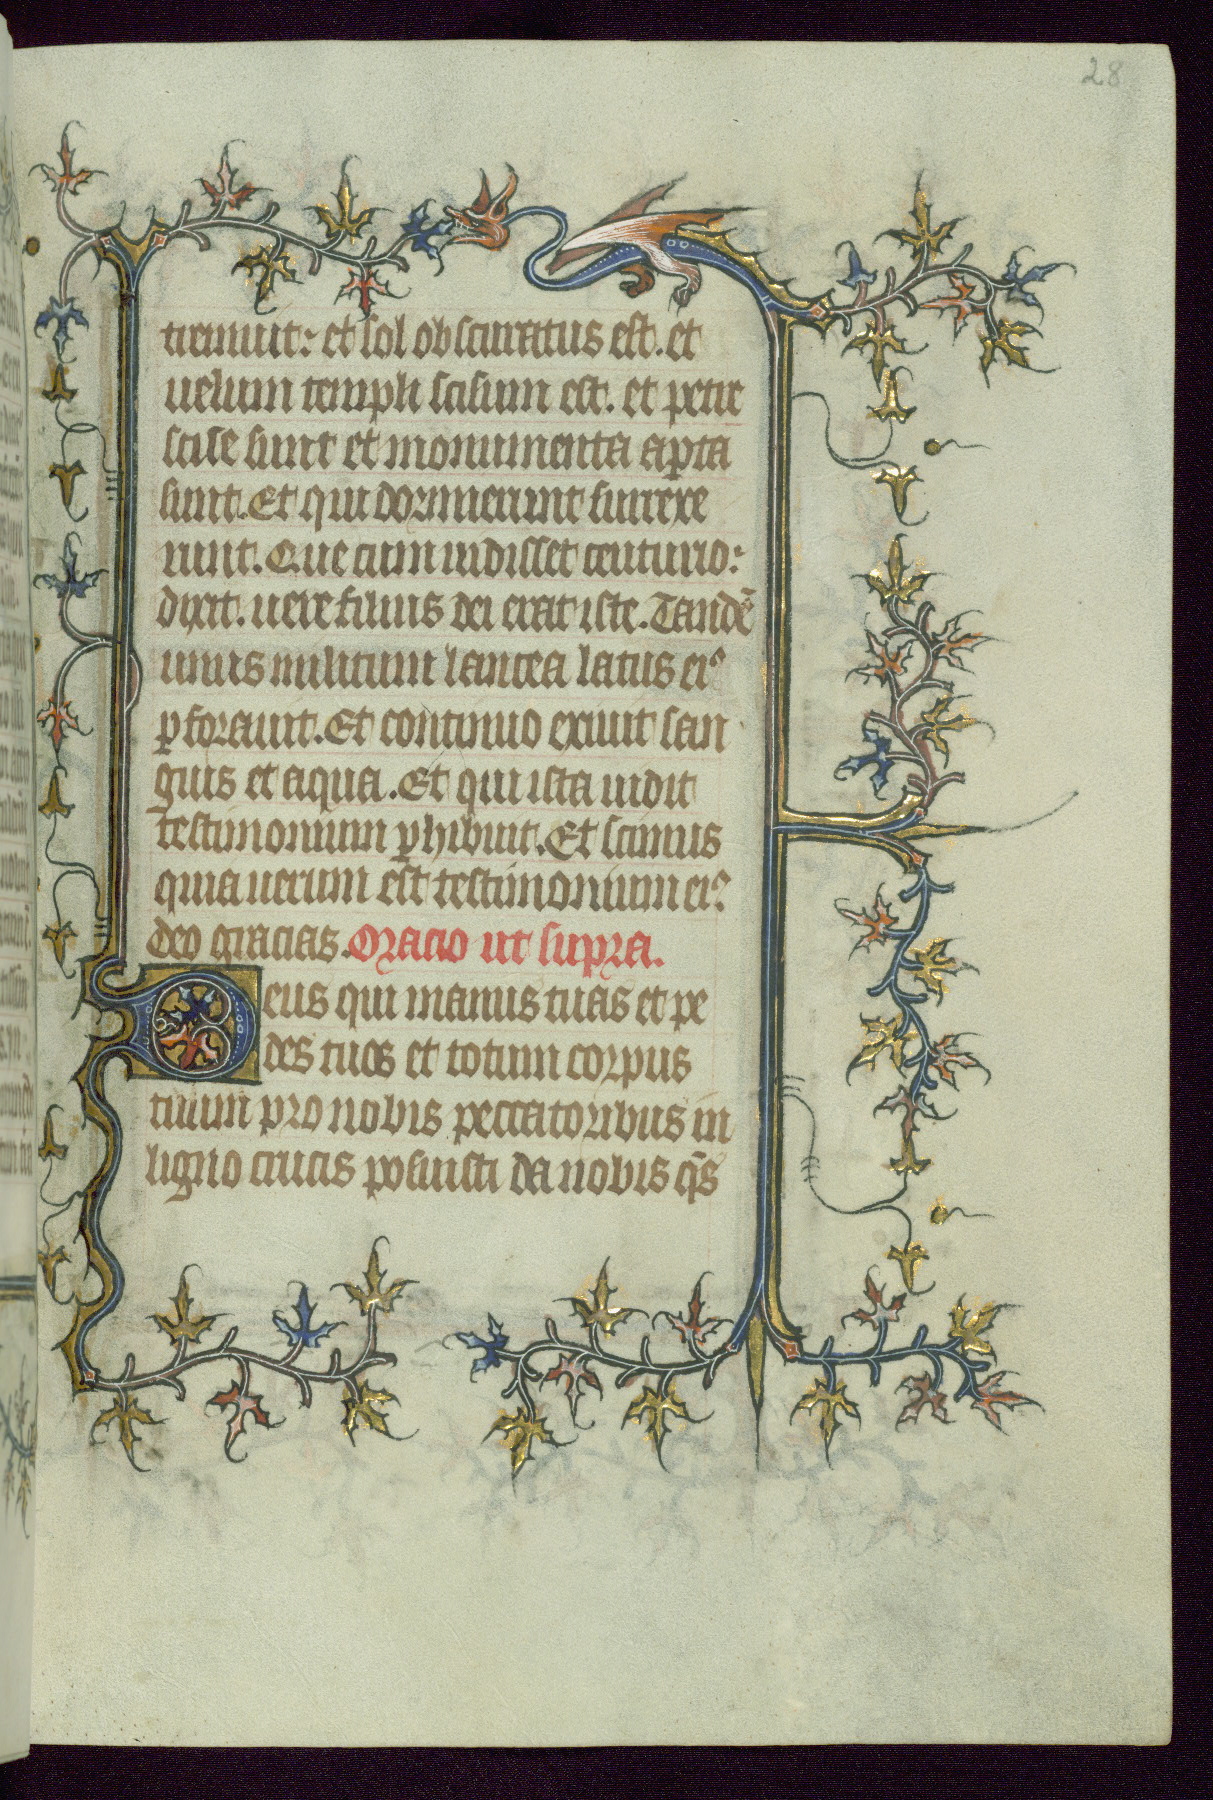 28
tremuit: et sol obscuratus est. et
uelum templi scisum est. et petre
scise sunt et monumenta apta
sunt. Et qui dormierunt surrexe
runt. Que cum uidisset centurio:
dixit. uere filius dei erat iste. Tandē
unus militum lancea latus eiꝰ
ꝑforauit. Et continuo exiuit san
guis et aqua. Et qui ista uidit
testimonium ꝑhibuit. Et scimus
quia uerum est testimonium eiꝰ
deo gracias. Oracio ut supra.
Deus qui manus tuas et pe
des tuos et totum corpus
tuum pro nobis peccatoribus in
ligno crucis posuisti da nobis q̄s